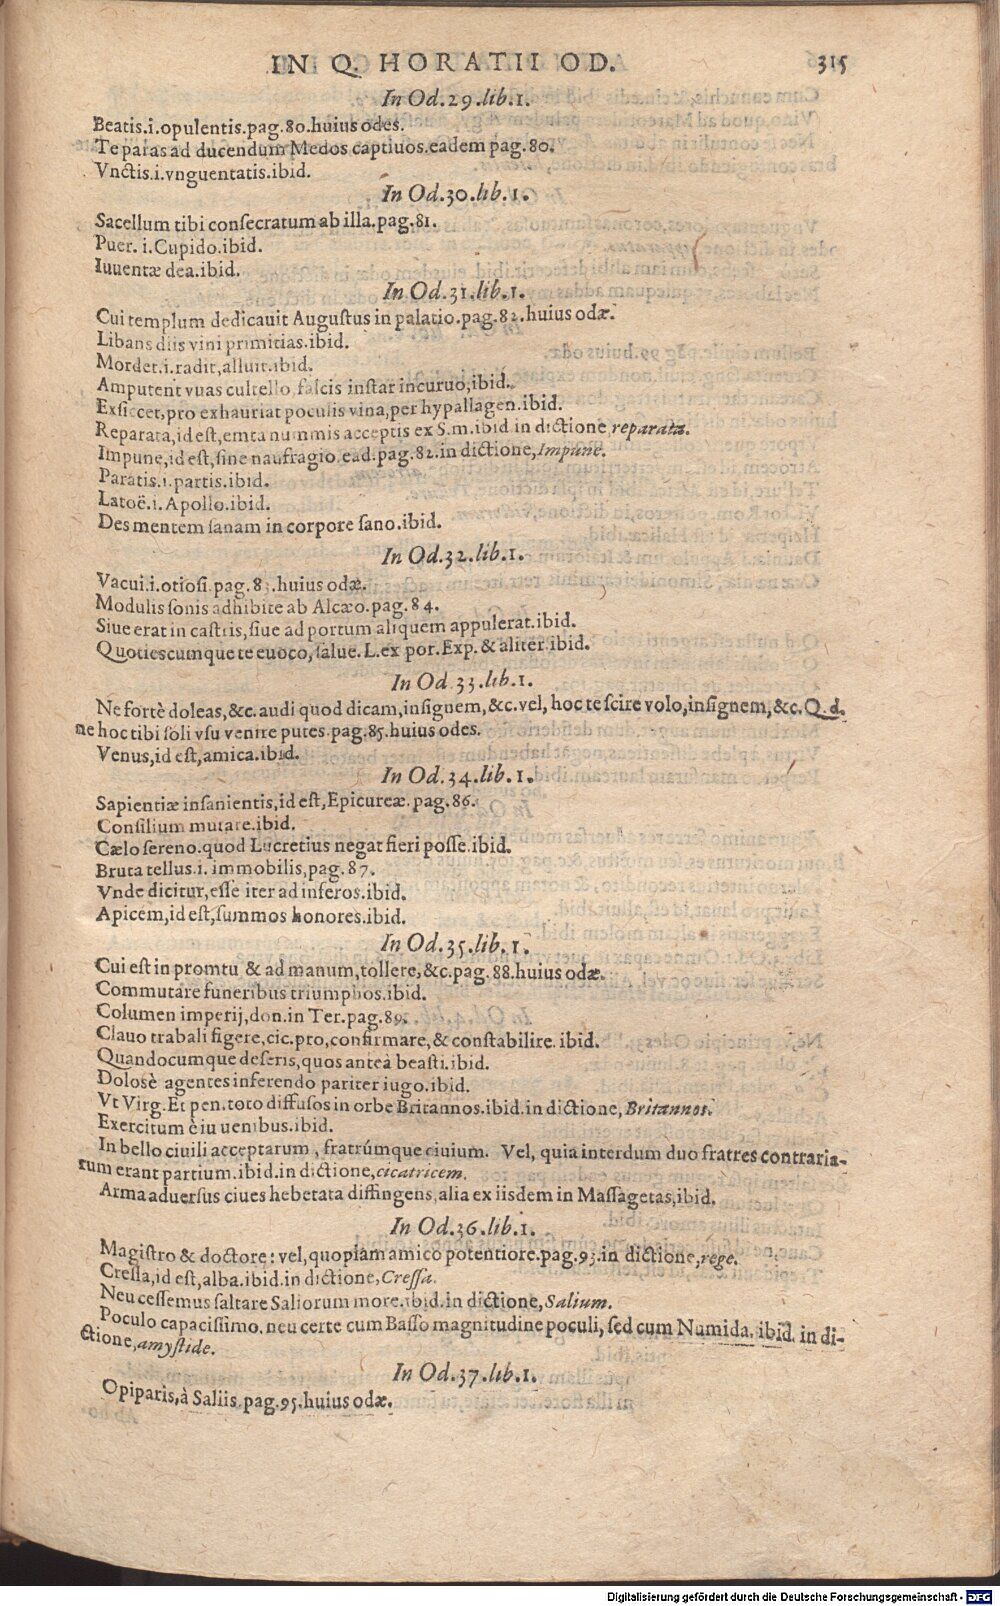 IN Q. HORATII OD. 315
In Od.29.lib.1.
Beatis.i.opulentis.pag.80.huius odes.
Te paras ad ducendum Medos captiuos.eadem pag.80.
Vnctis.i.vnguentatis.ibid.
In Od.30.lib.1.
Sacellum tibi consecratum ab illa.pag.81.
Puer. i.Cupido.ibid.
Iuuentæ dea.ibid.
In Od.31.lib.1.
Cui templum dedicauit Augustus in palatio.pag.82.huius odæ.
Libans diis vini primitias.ibid.
Mordet.i.radit,alluit.ibid.
Amputent vuas cultello falcis instar incuruo,ibid.
Exsiccet,pro exhauriat poculis vina,per hypallagen.ibid.
Reparata,id est,emta nummis acceptis ex S.m.ibid in dictione reparata.
Impune,id est,sine naufragio ead.pag.82.in dictione,Impune.
Paratis.i.partis.ibid.
Latoë.i.Apollo.ibid.
Des mentem sanam in corpore sano.ibid.
In Od.32.lib.1.
Vacui.i.otiosi.pag.83.huius odæ.
Modulis sonis adhibite ab Alcæo.pag.84.
Siue erat in castris,siue ad portum aliquem appulerat.ibid.
Quotiescumque te euoco,salue. L.ex por.Exp.& aliter.ibid.
In Od.33.lib.1.
Ne fortè doleas,&c.audi quod dicam,insignem,&c.vel, hoc te scire volo,insignem,&c.Q.d.
ne hoc tibi soli vsu venire putes.pag.85.huius odes.
Venus,id est,amica.ibid.
In Od.34.lib.1.
Sapientiæ insanientis,id est,Epicureæ.pag.86.
Consilium mutare.ibid.
Cælo sereno.quod Lucretius negat fieri posse.ibid.
Bruta tellus.i. immobilis,pag.87.
Vnde dicitur,esse iter ad inferos.ibid.
Apicem,id est,summos honores.ibid.
In Od.35.lib.1.
Cui est in promtu & ad manum,tollere,&c.pag.88.huius odæ.
Commutare funeribus triumphos.ibid.
Columen imperij,don.in Ter.pag.89.
Clauo trabali figere,cic.pro,confirmare,& constabilire. ibid.
Quandocumque deseris,quos antea beasti.ibid.
Dolosè agentes inferendo pariter iugo.ibid.
Vt Virg.Et pen.toto diffusos in orbe Britannos.ibid.in dictione,Britannos.
Exercitum è iuuenibus.ibid.
In bello ciuili acceptarum, fratrúmque ciuium. Vel, quia interdum duo fratres contraria-
rum erant partium.ibid.in dictione,cicatricem.
Arma aduersus ciues hebetata diffingens,alia ex iisdem in Massagetas,ibid.
In Od.36.lib.1.
Magistro & doctore: vel,quopiam amico potentiore.pag.93.in dictione,rege.
Cressa,id est,alba.ibid.in dictione,Cressa.
Neu cessemus saltare Saliorum more.ibid.in dictione,Salium.
Poculo capacissimo.neu certe cum Basso magnitudine poculi, sed cum Numida. ibid. in di-
ctione,amystide.
In Od.37.lib.1.
Opiparis,à Saliis.pag.95.huius odæ.
Digitalisierung gefördert durch die Deutsche Forschungsgemeinschaft - DFG